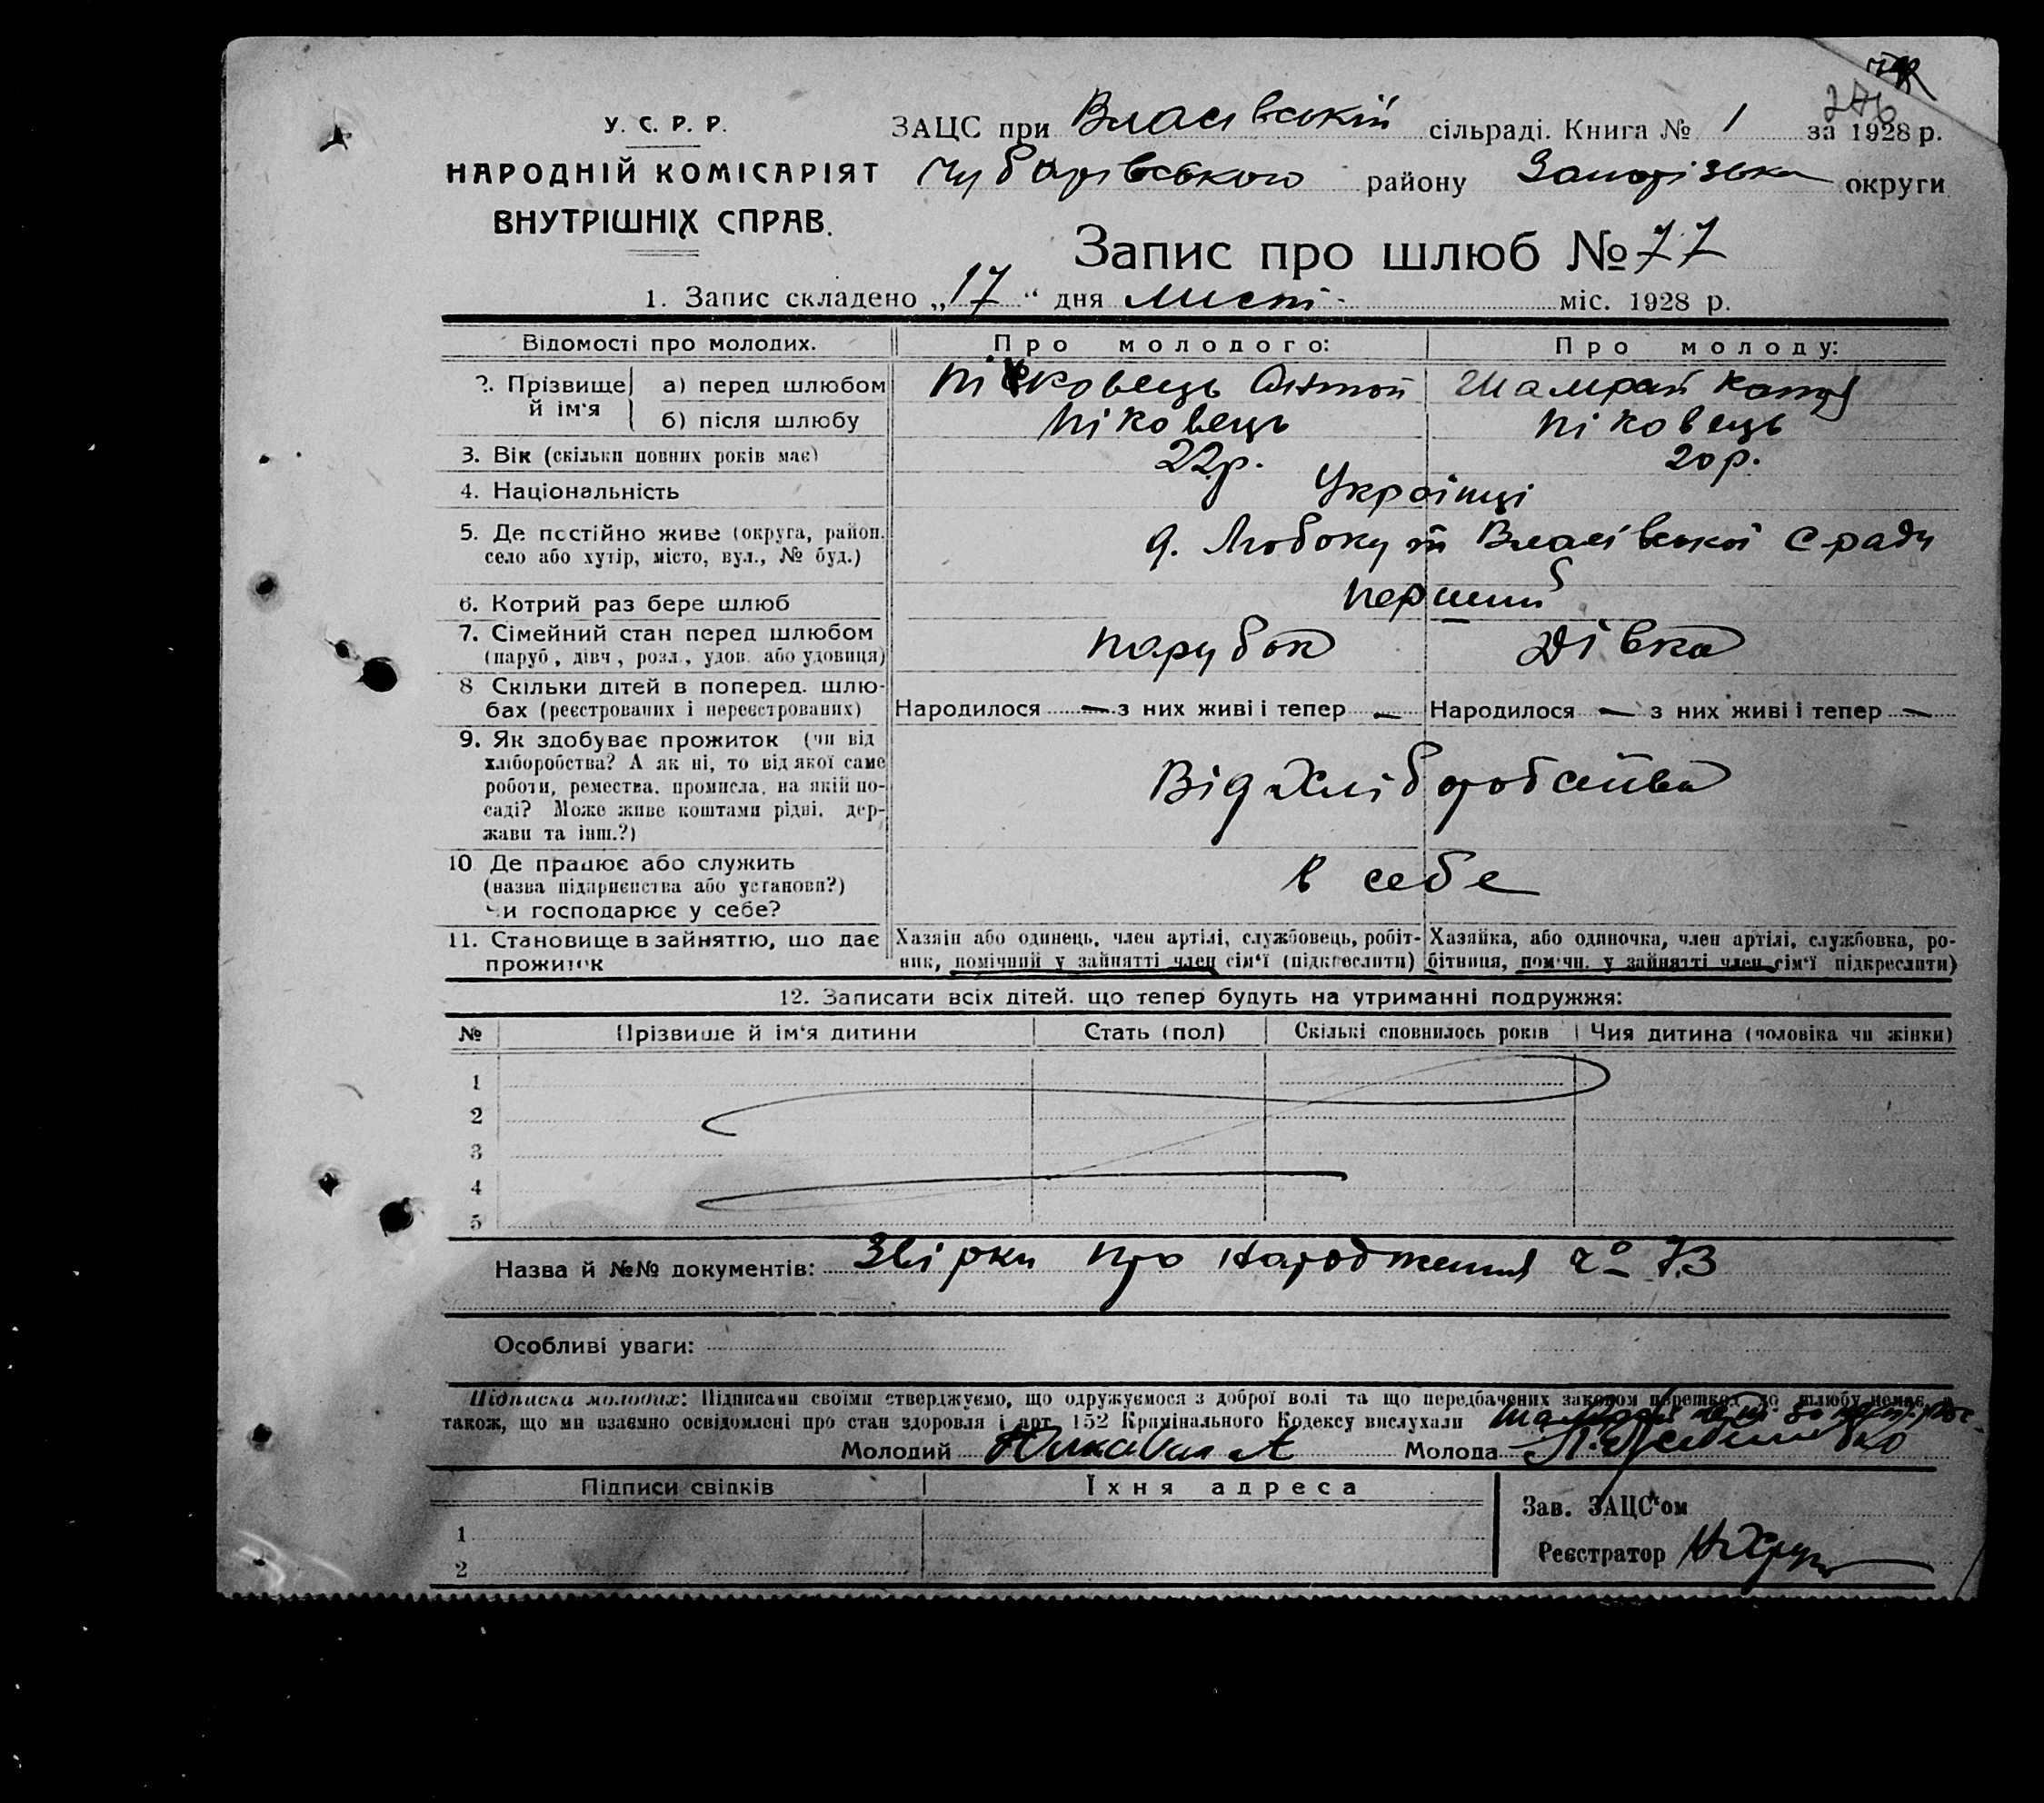 276
У. С. Р. Р.
НАРОДНІЙ КОМІСАРІЯТ
ВНУТРІШНІХ СПРАВ.
ЗАЦС при Власівській сільраді. Книга № 1 за 1928 р.
Чубарівського району Запорізька округи
Запис про шлюб № 77
1. Запис складено „17“ дня Лист- міс. 1928 р.
Відомості про молодих. Про молодого: Про молоду:
2. Прізвище й ім'я а) перед шлюбом Піковець Антон Шамрай
б) після шлюбу Піковець Піковець
3. Вік (скільки повних років має) 22р. 20р.
4. Національність Українці
5. Де постійно живе (округа, район.
село або хутір, місто, вул., № буд.) д. Любокут Власівської С-ради
6. Котрий раз бере шлюб перший
7. Сімейний стан перед шлюбом
(паруб, дівч, розл., удов. або удовиця) парубок Дівка
8 Скільки дітей в поперед. шлю-
бах (реєстрованих і нереєстрованих) Народилося — з них живі і тепер — Народилося — з них живі і тепер —
9. Як здобуває прожиток (чи від
хліборобства? А як ні, то від якої саме
роботи, ремества, промисла, на якій по-
саді? Може живе коштами рідні, дер-
жави та інш.?)
Від Хліборобства
10 Де працює або служить
(назва підприєнства або установи?)
Чи господарює у себе?
в себе
11. Становище в зайняттю, що дає
прожиток
Хазяін або одинець, член артілі, службовець, робіт-
ник, помічний у зайнятті член сім'ї (підкреслити)
Хазяйка, або одиночка, член артілі, службовка, ро-
бітниця, помічн. у зайнятті член сім'ї підкреслити)
12. Записати всіх дітей, що тепер будуть на утриманні подружжя:
№ Прізвише й ім'я дитини Стать (пол) Скількі сповнилось років Чия дитина (чоловіка чи жінки)
1
2
3
4
5
Назва й №№ документів: Звірки про народження 73
Особливі уваги:
Підписка молодих: Підписами своїми стверджуємо, що одружуємося з доброї волі та що передбачених законом перешкод до шлюбу немає, а
також, що ми взаємно освідомлені про стан здоровля і арт. 152 Крімінального Кодексу вислухали
Молодий Молода
Підписи свідків Їхня адреса
1
2
Зав. ЗАЦС'ом
Реєстратор